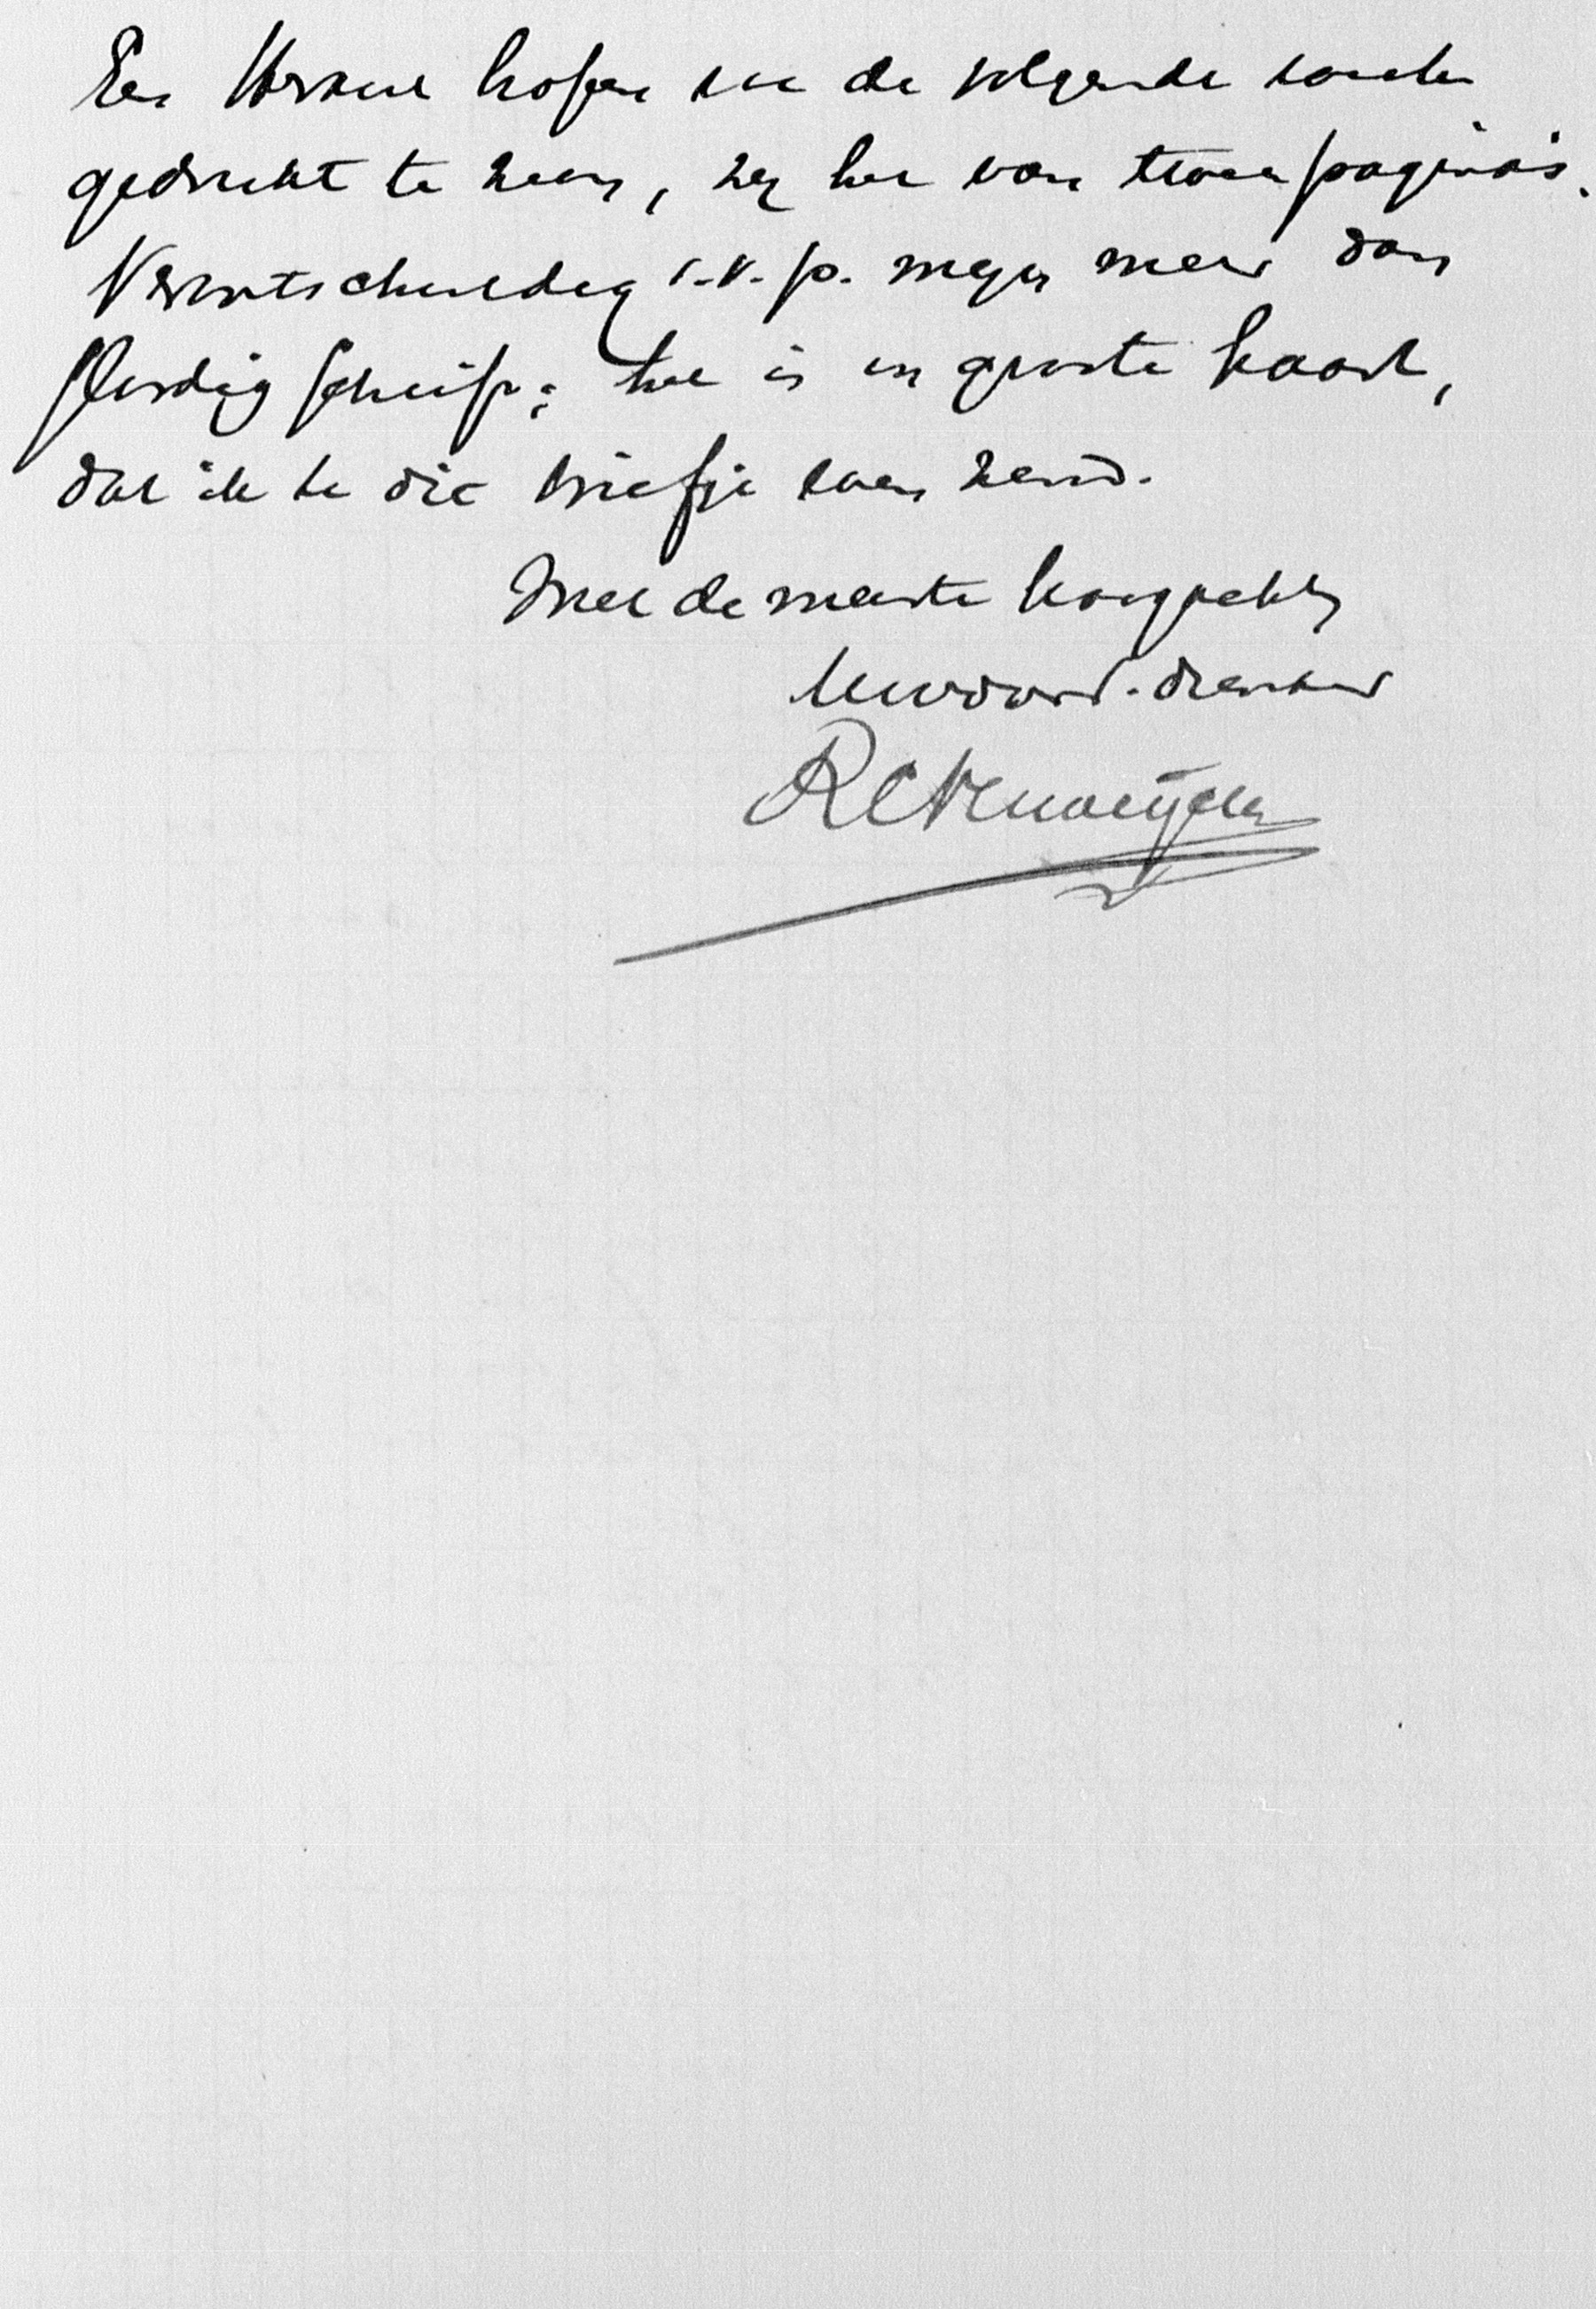 En Verder hopen we de volgende
gedrukt te zien, zij het van twee pagina's.
Verontschuldig s.v.p. mijn meer dan
slordig schrift; het is in groote haast,
dat ik U dit briefje even zend.
Met de meeste hoogacht.
Uw dw. dienaar